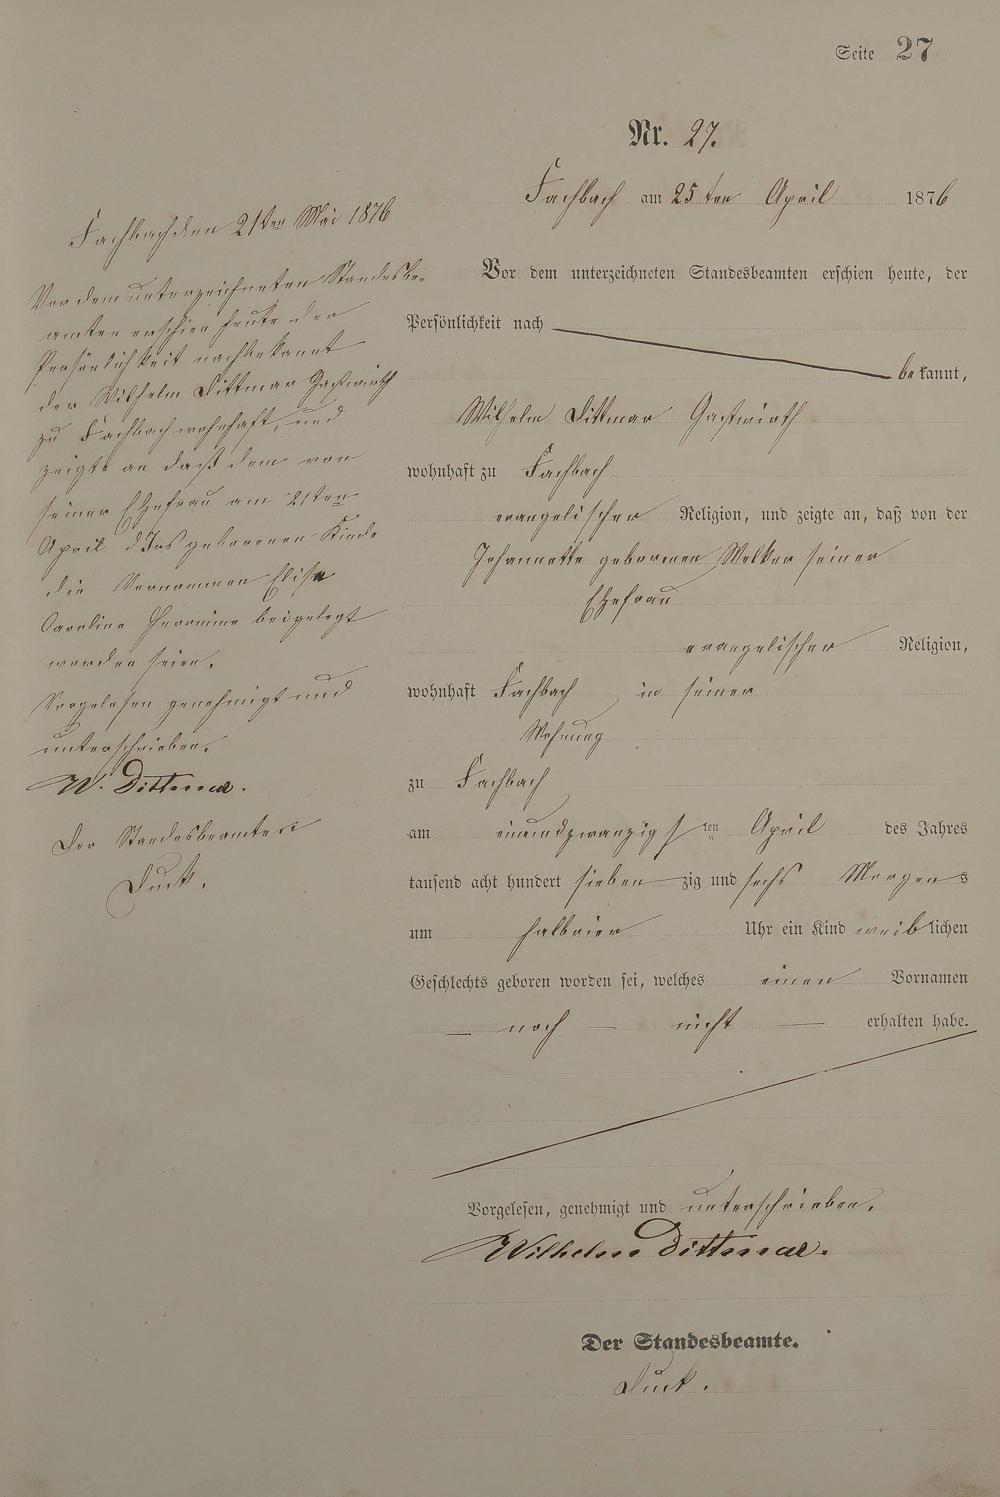 Seite 27
Nr. 27.
Fachbach am 25ten April 1876
Vor dem unterzeichneten Standesbeamten erschien heute, der
Persönlichkeit nach
bekannt,
Wilhelm Dittmar Gastwirth
wohnhaft zu Fachbach
evangelischer Religion, und zeigte an, daß von der
Johannette gebornen Welker seiner
Ehefrau
evangelischer Religion,
wohnhaft Fachbach in seiner
Wohnung
zu Fachbach
am einundzwanzigsten April des Jahres
tausend acht hundert siebenzig und sechs Morgens
um halbvier Uhr ein Kind weiblichen
Geschlechts geboren worden sei, welches einen Vornamen
noch nicht erhalten habe.
Vorgelesen, genehmigt und unterschrieben.
Wilhelm Dittmar.
Der Standesbeamte.
Duck.
Fachbach den 21ten Mai 1876
Vor dem unterzeichneten Standesbe-
amten erschien heute der
Persönlichkeit nach bekannt
der Wilhelm Dittmar Gastwirth
zu Fachbach wohnhaft, und
zeigte an daß dem von
seiner Ehefrau am 21ten
April d Jrs geborenen Kinde
die Vornamen Elise
Caroline beigelegt
worden seien.
Vorgelesen genehmigt und
unterschrieben.
W. Dittmar.
Der Standesbeamte
Duck.